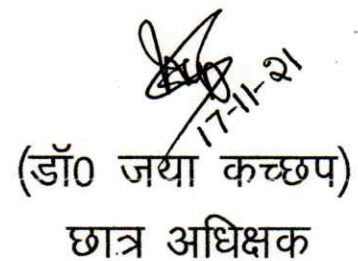 17-11-21
(डॉ0 जया कच्छप)
छात्र अधिक्षक